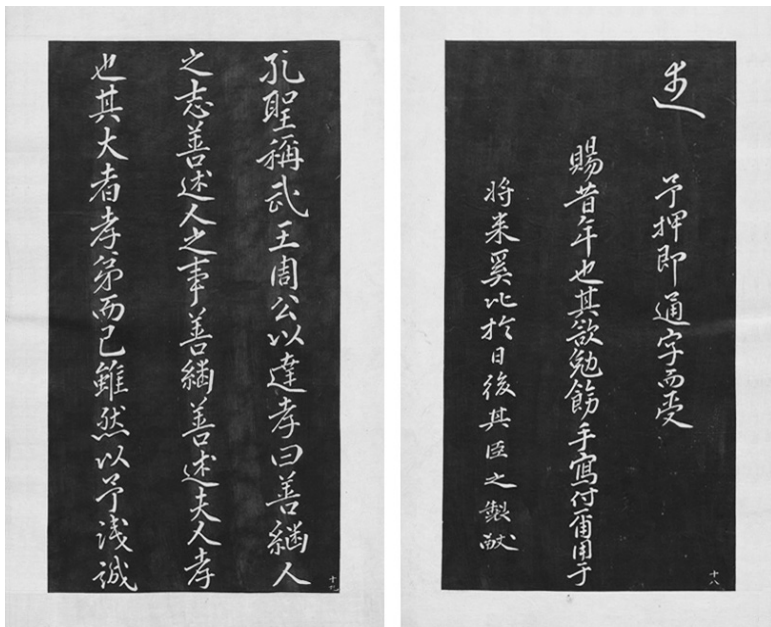 予押即通字而受
賜昔年也其欲勉飭手寫付爾用于
將来奚比於日後其臣之製
十八
孔聖稱武王周公以達孝曰善繼人
之志善述人之事善繼善述夫人孝
也其大者孝弟而已雖然以予淺誠
十九